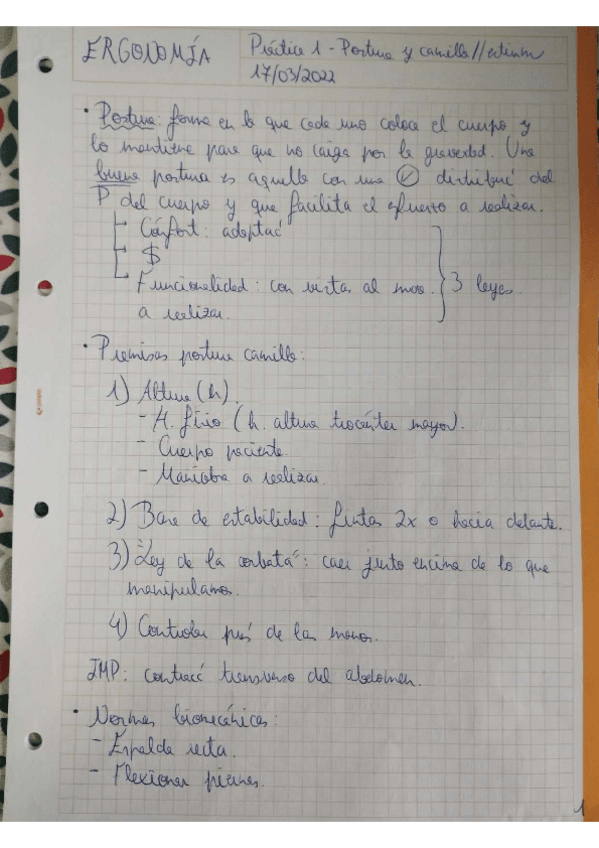 ERGONOMÍA
Práctica 1 - Postura y camilla//
17/03/2022
· Postura: forma en la que cada uno coloca el cuerpo y
lo mantiene para que no caiga por la gravedad. Una
buena postura es aquella con una ✓ distribuc⁻ del
P del cuerpo y que facilita el esfuerzo a realizar.
Cónfort: adaptac⁻
$
Funcionalidad: con vistas al mov. } 3 leyes
a realizar.
· Premisas postura camilla:
1) Altura (h).
- H. fisio (h. altura trocánter mayor).
- Cuerpo paciente.
- Maniobra a realizar.
2) Base de estabilidad: fintas 2x o hacia delante.
3) "Ley de la corbata": caer justo encima de lo que
manipulamos.
4) Controlar pres⁻ de las manos.
IMP: contracc⁻ transverso del abdomen.
· Normas biomecánicas:
- Espalda recta.
- Flexionar piernas.
1